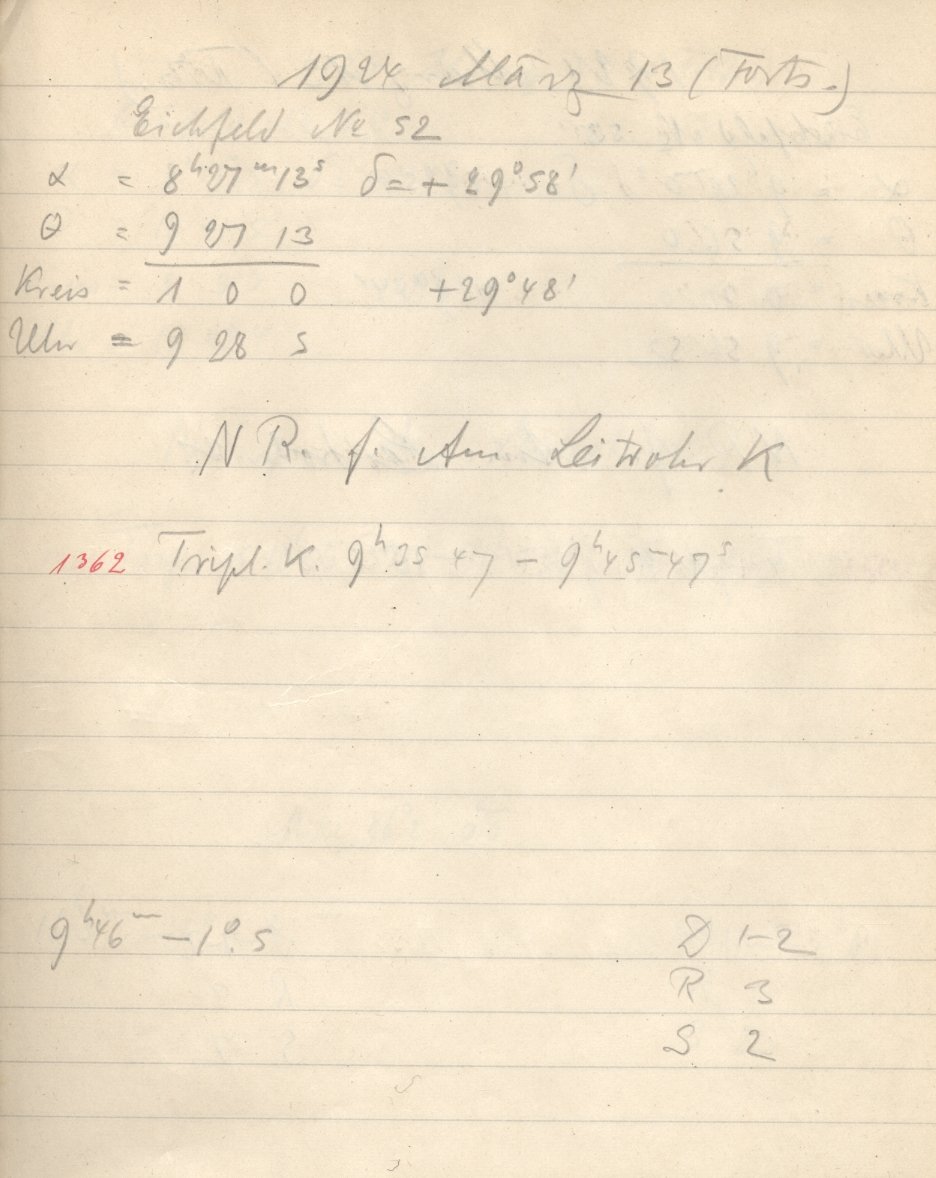 1924 März 13 (Forts.)
Eichfeld No 52
α = 8ʰ27ᵐ13ˢ δ = + 29°58'
θ = 9 27 13
Kreis = 1 0 0 +29°48'
Uhr = 9 28 5
N R. f. Am Leitrohr K
1362 Tripl. K. 9ʰ35 47 – 9ʰ45ᵐ47ˢ
9ʰ46ᵐ –1°.5 D 1-2
R 3
S 2